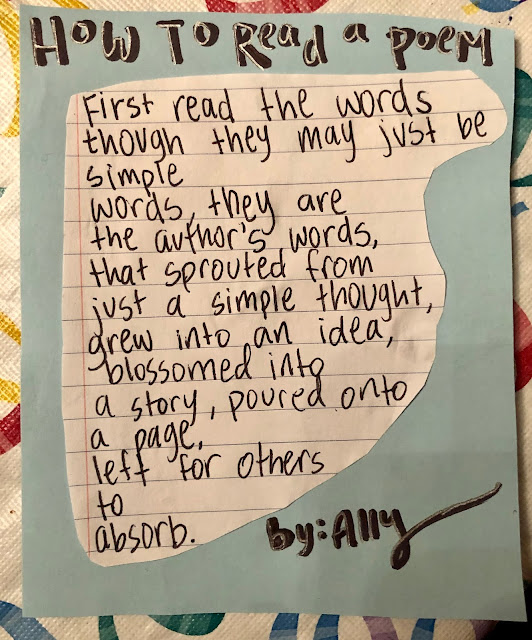 HOW TO Read a poem
First read the words
though they may just be
simple
words, they are
the author's words,
that sprouted from
just a simple thought,
grew into an idea,
blossomed into
a story, poured onto
a page,
left for others
to
absorb.
by: Ally